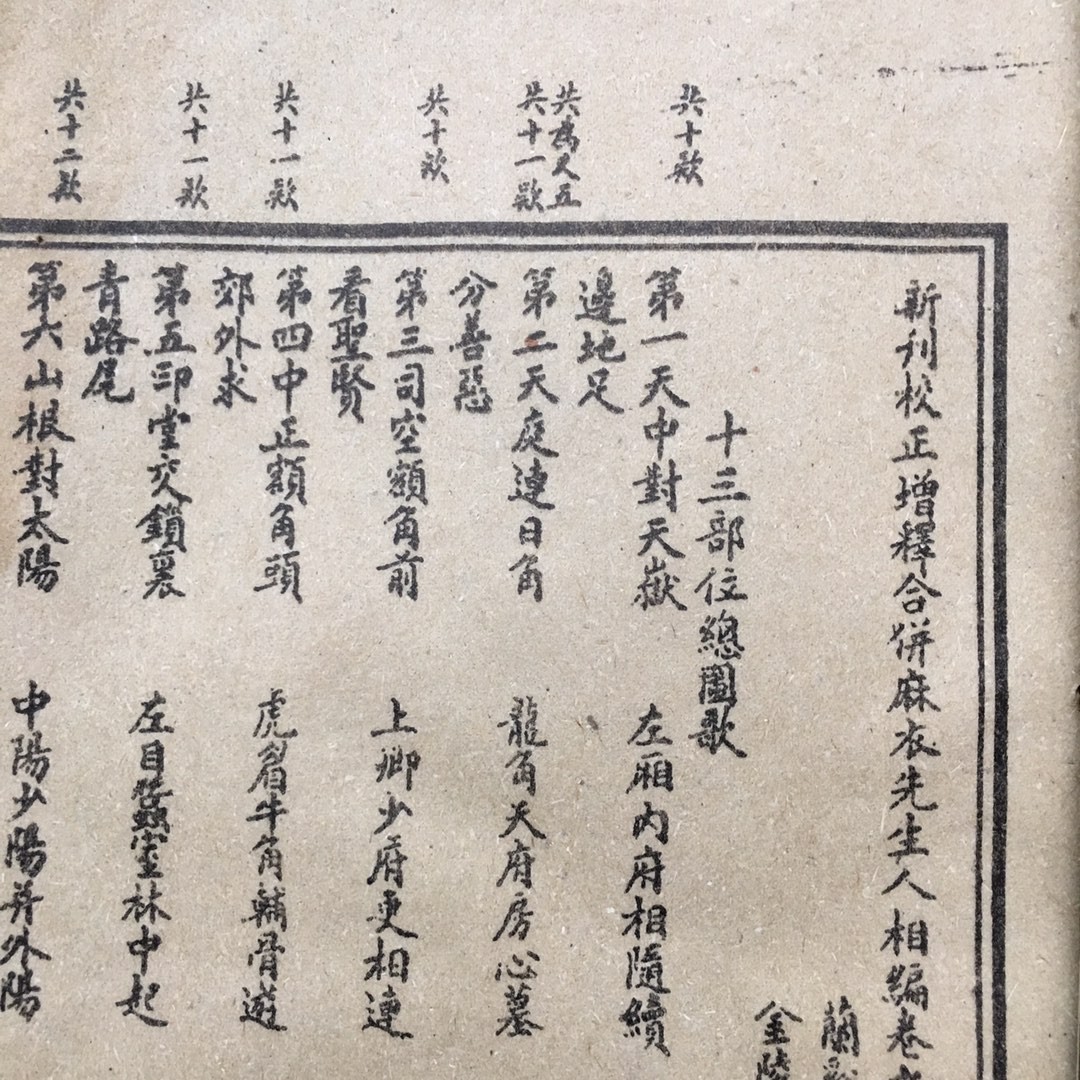 共十款
共為又五
共十一款
共十款
共十一款
共十一款
共十二款
新刊校正增釋合併麻衣先生人相編卷
蘭
金陵
十三部位總圖歌
第一天中對天嶽 左廂內府相隨續
邊地足
第二天庭連日角 龍角天府房心墓
分善惡
第三司空額角前 上卿少府更相連
看聖賢
第四中正額角頭 虎眉牛角輔骨遊
郊外求
第五印堂交鎖裏 左目蠶室林中起
青路尾
第六山根對太陽 中陽少陽并外陽